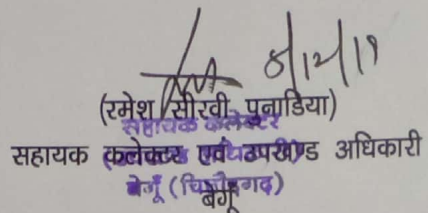 8/12/19
(रमेश सीरवी पुनाडिया)
सहायक कलेक्टर
सहायक कलेक्टर एवं उपखण्ड अधिकारी
बेगूँ (चित्तौड़गढ़)
बेगूँ